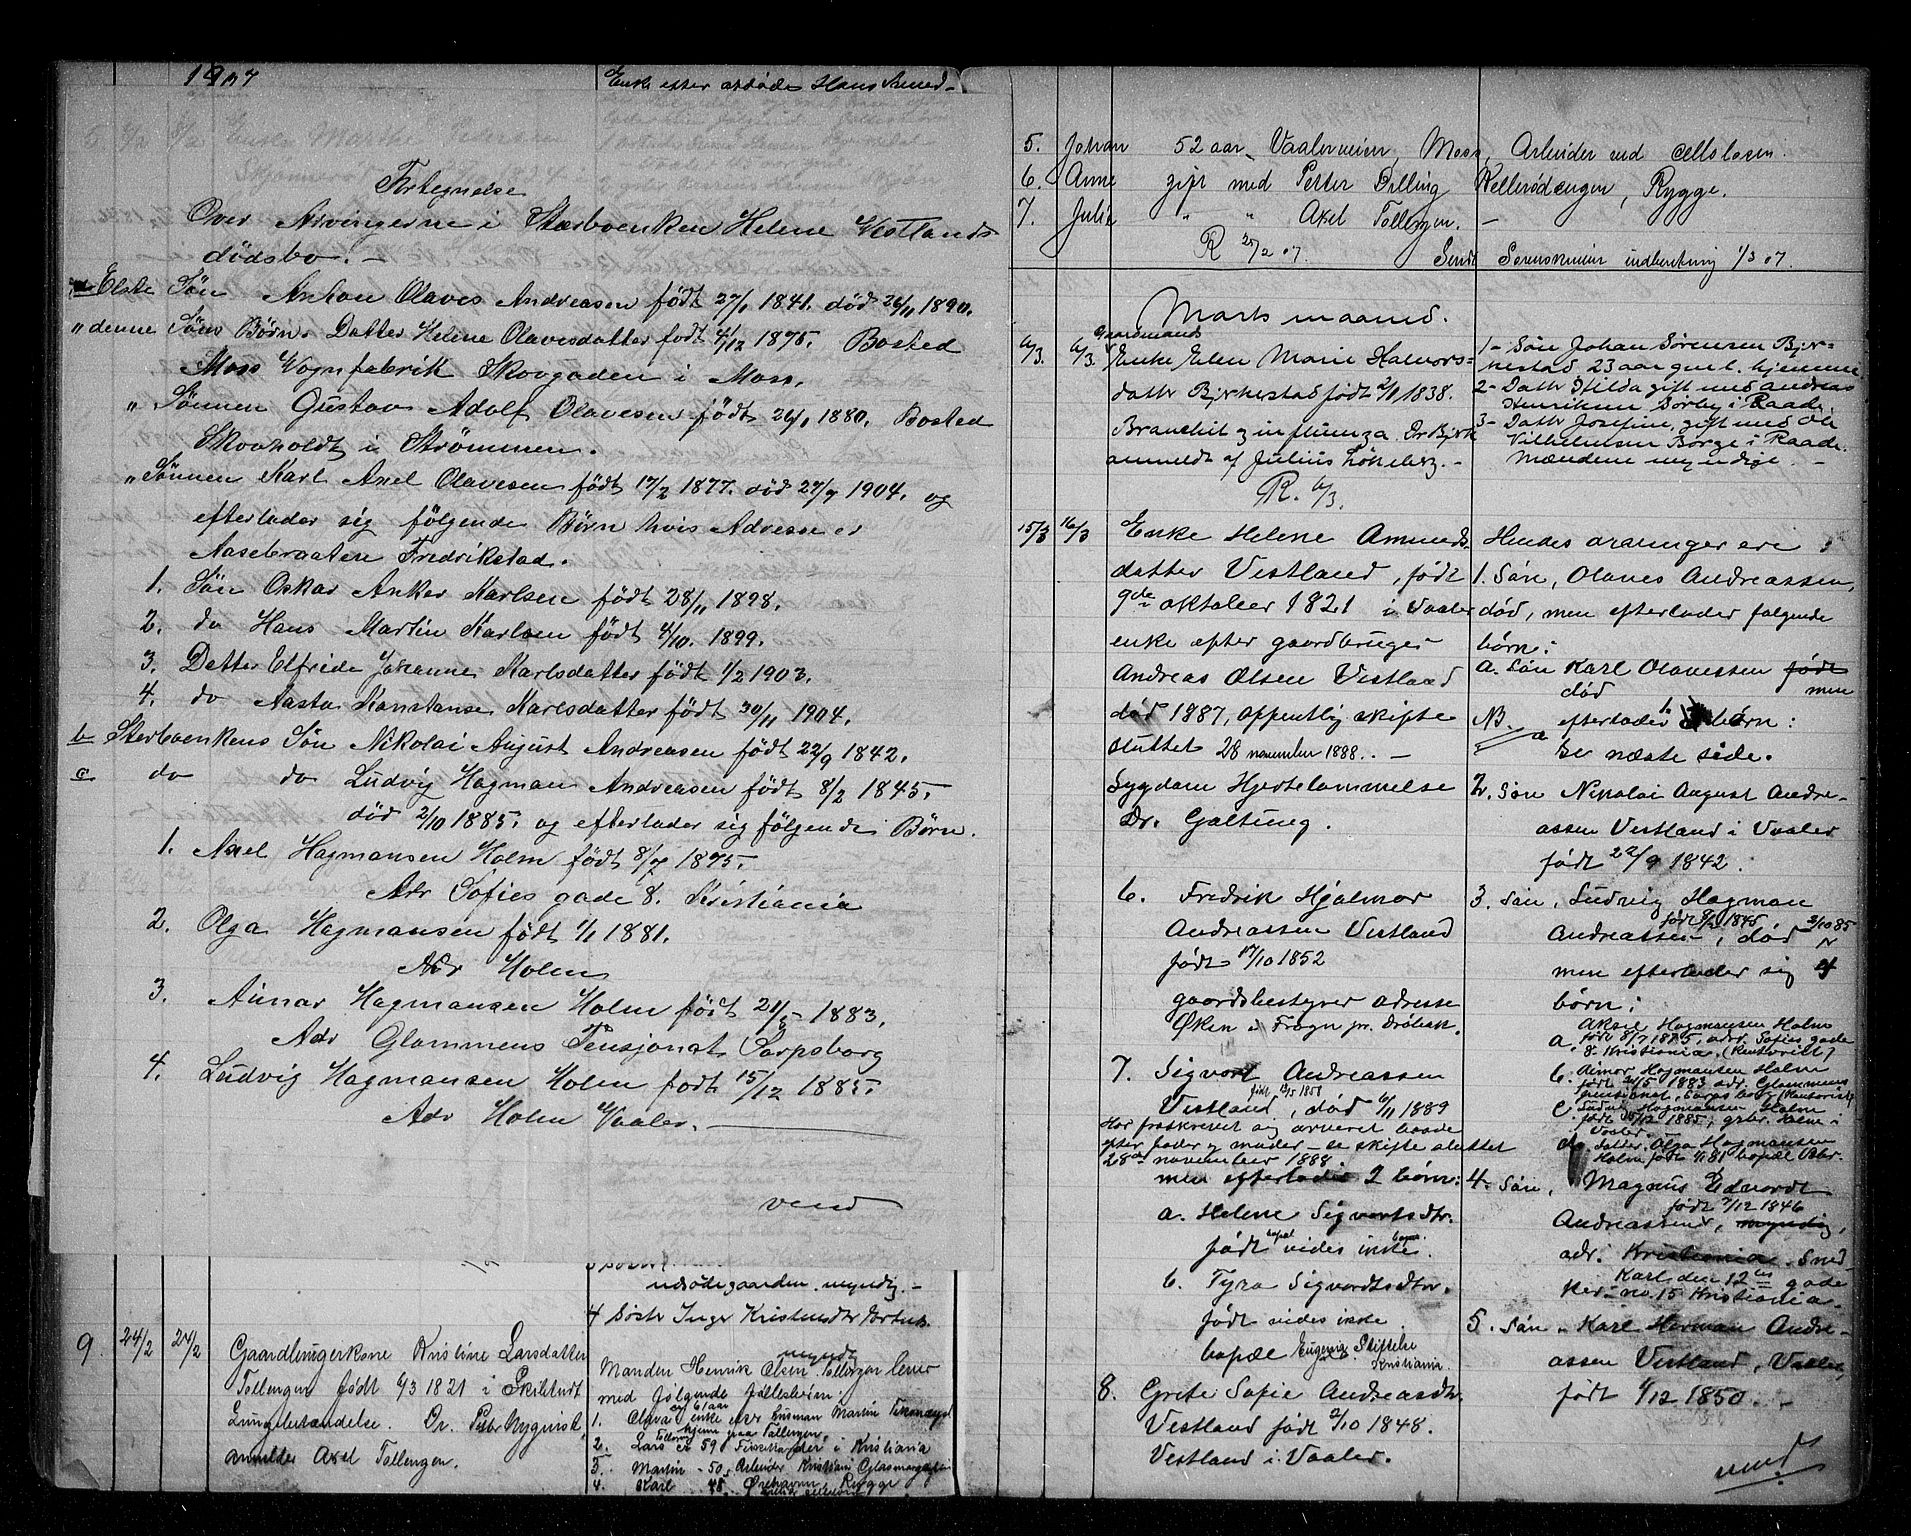 1907
Enke efter afdøde Hans Amund-
Fortegnelse
Over Arvingerne i Stærboenken Helene Vestlands
dødsbo. —
Elste Søn Anton Olaves Andreasen født 27/1 1841. død 26/11 1890.
" denne Søns Børn. Datter Helene Olavesdatter født 4/12 1875. Bosted
Moss Vognfabrik Skovgaden i Moss.
" Sønnen Gustav Adolf Olavesen født 26/1 1880. Bosted
Skovholdt i Strømmen.
" Sønnen Karl Axel Olavesen født 17/2 1877. død 27/7 1904. og
efterlader sig følgende Børn hvis Adresse er
Aasebraaten Fredrikstad.
1. Søn Oskar Anker Karlsen født 28/11 1898.
2. do Hans Martin Karlsen født 4/10. 1899.
3. Datter Elfride Johanne Karlsdatter født 1/2 1903.
4. do Aasta Konstanse Karlsdatter født 30/11 1904.
b Sterboenkens Søn Nikolai August Andreasen født 22/9 1842.
c do do Ludvig Hagman Andreasen født 8/2 1845.
død 2/10 1885. og efterlader sig følgende Børn.
1. Axel Hagmansen Holm født 8/7 1875.
Adr Sofies gade 8. Kristiania
2. Olga Hagmansen født 1/1 1881.
Adr Holm
3. Aimar Hagmansen Holm født 21/5 1883.
Adr Glommens Pensjonat Sarpsborg
4. Ludvig Hagmansen Holm født 15/12 1885.
Adr Holm Vaaler.
vend
ndsødegaarden. myndig. —
4 Søster Inger
9. 24/2 24/2 Gaardbrugerkone Kristine Larsdatter
Tollengen født 6/3 1821 i Skiptvedt
Lungebetændelse. Dr. Peter Nyquist,
anmelder Axel Tollengen.
myndig
Manden Henrik Olsen Tollengen lever
med følgende fællesbørn:
1. Olava enke efter husmand Martin
hjemme paa Tollengen.
2. Lars er 59 i Kristiania
3. Martin - 50 - Arbeider Kristiania
4. Karl 48 Rygge
5. Johan 52 aar, Vaalerveien, Moss, Arbeider ved cellulosen.
6. Anne gift med Petter Dilling Kellerødengen, Rygge.
7. Julie " " Axel Tollengen. —
R 25/2 07. Sendt Sorenskriveren indberetning 1/3 07.
Marts maaned.
6/3. 6/3. Gaardmands
Enke Elen Marie Halvors-
datter Bjerkestad født 2/11 1838.
Bronchit og influenza. Dr Bjerk
anmeldt af Julius Løkeberg. —
R. 6/3.
1 - Søn Johan Sørensen Bjer-
kestad 23 aar gml. hjemme
2 - Datter Hilda gift med Andreas
Henriksen Sørby i Raade.
3 - Datter Josefine, gift med Ole
Vilhelmsen Børge i Raade.
Mændene myndige. —
15/3 16/3 Enke Helene Amunds-
datter Vestland, født
9de oktober 1821 i Vaaler
enke efter gaardbruger
Andreas Olsen Vestland
død 1887, offentlig skifte
sluttet 28 november 1888. —
Sygdom Hjertelammelse
Dr. Galtung.
Hendes arvinger ere:
1. Søn, Olaves Andreassen,
død, men efterlader følgende
børn:
a. Søn Karl Olavessen født
død men
NB. efterlader børn:
Se næste side.
2. Søn Nikolai August Andre-
assen Vestland i Vaaler
født 22/9 1842.
3. Søn, Ludvig Hagman
født 8/2 1845
Andreassen, død 2/10 85
men efterlader sig 4
børn:
a. Aksel Hagmansen Holm
født 8/7 1875, adr. Sofies gade
8. Kristiania. (Kontorist)
b. Aimar Hagmansen Holm
født 21/5 1883 adr. Glommens
pensionat, Sarpsborg (Kontorist)
c Ludvig Hagmansen Holm
født 15/12 1885, gbr. Holm i
Vaaler.
d. Datter Olga Hagmansen
Holm født 1/1 81 bopæl
4. Søn, Magnus Edvardt
født 7/12 1846
Andreassen, myndig,
adr. Kristiania. Sned-
Karl den 12tes gade
ker- no. 15 Kristiania.
5. Søn - Karl Herman Andre-
assen Vestland, Vaaler,
født 6/12 1850. —
vend
6. Fredrik Hjalmar
Andreassen Vestland
født 17/10 1852
gaardsbestyrer adresse
Øken i Frogn pr. Drøbak.
7. Sigvart Andreassen
Vestland, død 6/11 1889
Har fraskrevet sig arveret baade
efter fader og moder - se skifte sluttet
28de november 1888
men efterlader 2 børn:
a. Helene Sigvartsdtr.
født vides ikke.
b. Tyra Sigvardtsdtr.
født vides ikke
bopæl Eugenia Stiftelse
Kristiania
8. Grete Sofie Andreasdtr.
Vestland født 2/10 1848.
Vestland i Vaaler.